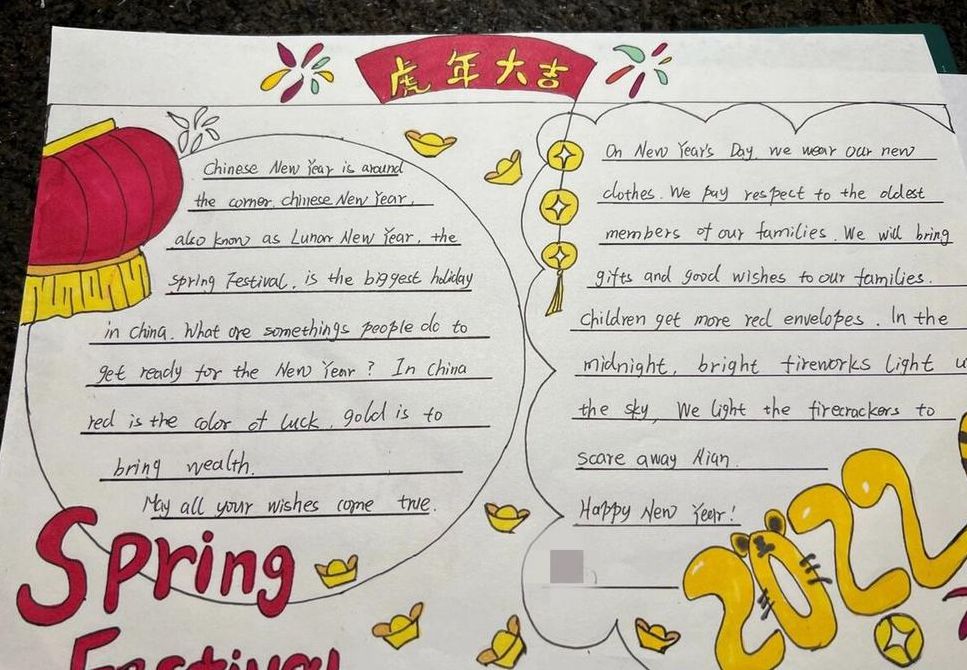 虎年大吉
Chinese New Year is around
the corner. chinese New Year,
also know as Lunar New Year, the
spring Festival, is the biggest holiday
in china. What are somethings people do to
get ready for the New Year? In china
red is the color of luck. gold is to
bring wealth.
May all your wishes come true.
On New Year's Day, we wear our new
clothes. We pay respect to the oldest
members of our families. We will bring
gifts and good wishes to our families.
children get more red envelopes. In the
midnight, bright fireworks light u
the sky. We light the firecrackers to
scare away Nian.
Happy New Year!
Spring
Festival
2022